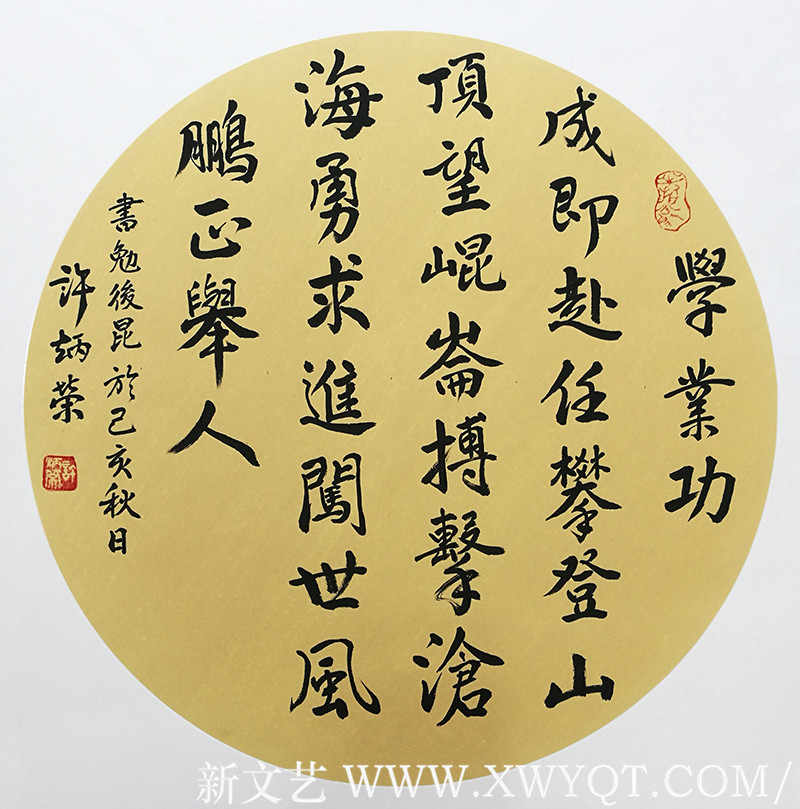 學業功
成即赴任攀登山
頂望崐崙搏擊滄
海勇求進闖世風
鵬正舉人
書勉後昆於己亥秋日
許炳榮
新文艺 WWW.XWYQT.COM/